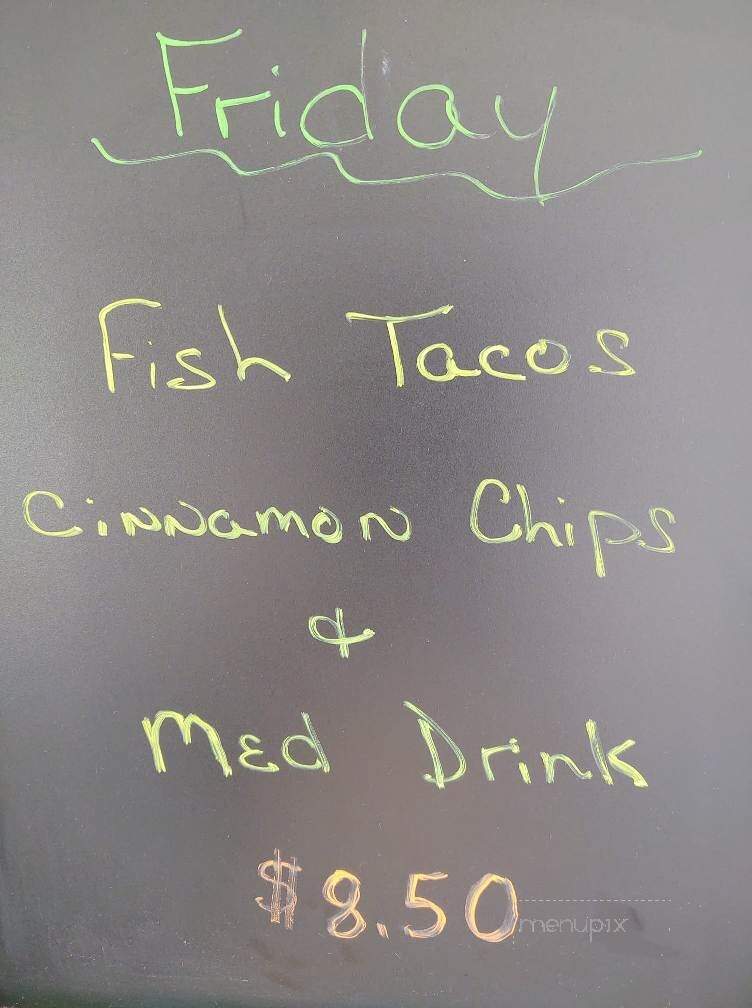 Friday
Fish Tacos
Cinnamon Chips
&
Med Drink
$8.50
menupix